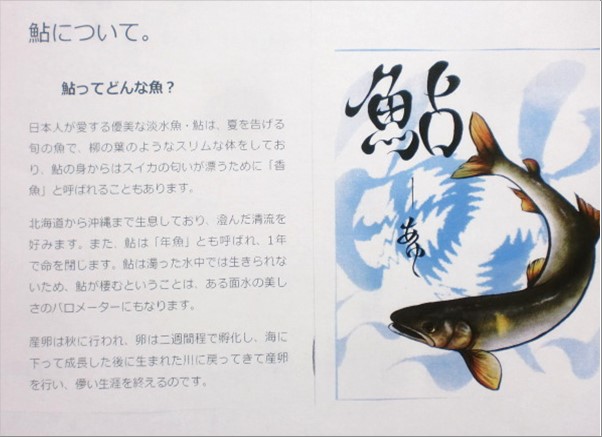 鮎について。
鮎ってどんな魚？
日本人が愛する優美な淡水魚・鮎は、夏を告げる
旬の魚で、柳の葉のようなスリムな体をしてお
り、鮎の身からはスイカの匂いが漂うために「香
魚」と呼ばれることもあります。
北海道から沖縄まで生息しており、澄んだ清流を
好みます。また、鮎は「年魚」とも呼ばれ、1年
で命を閉じます。鮎は濁った水中では生きられな
いため、鮎が棲むということは、ある面水の美し
さのバロメーターにもなります。
産卵は秋に行われ、卵は二週間程で孵化し、海に
下って成長した後に生まれた川に戻ってきて産卵
を行い、儚い生涯を終えるのです。
鮎
あゆ